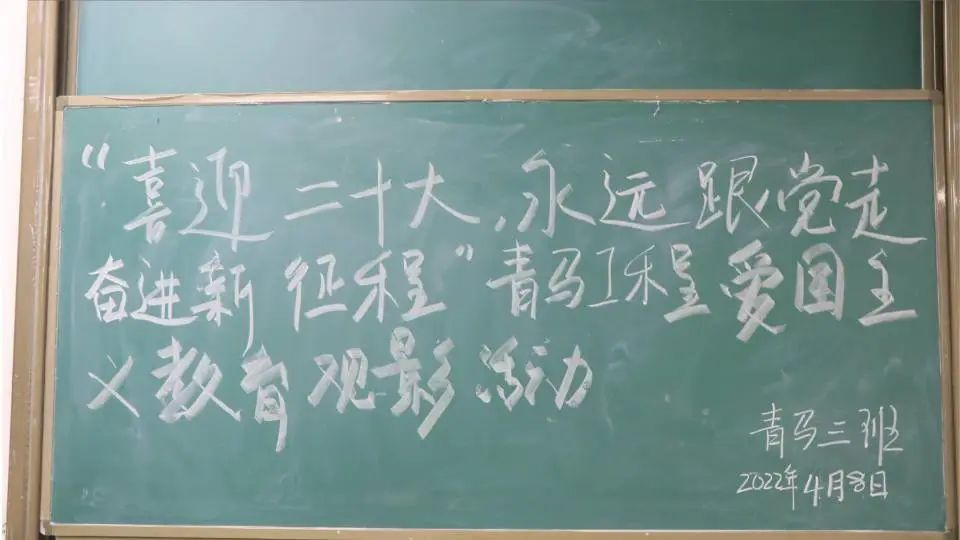 “喜迎二十大,永远跟党走
奋进新征程”青马工程爱国主
义教育观影活动
青马三班
2022年4月8日